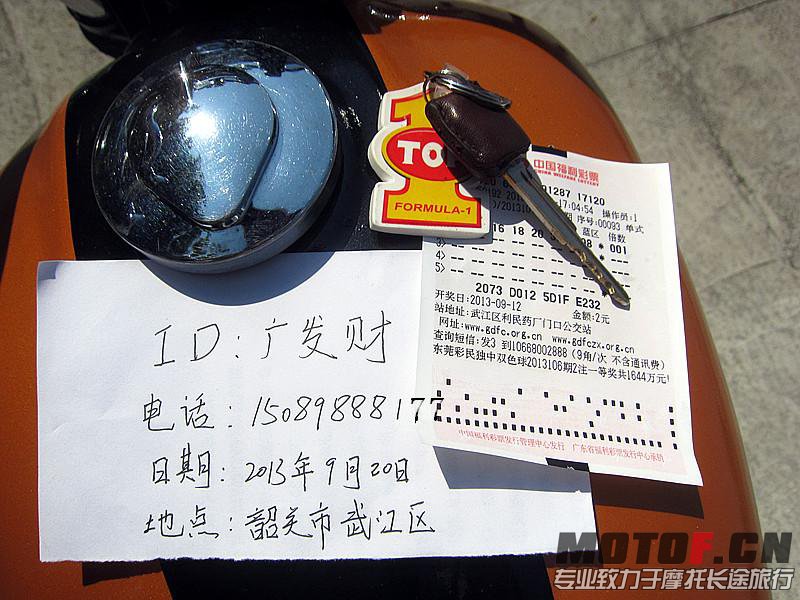 TOP
1
FORMULA-1
中国福利彩票
CHINA WELFARE LOTTERY
91287 17120
17:04:54 操作员:1
序号:00093 单式
蓝区 倍数
16 18 20
08 * 001
3>
4>
5>
2073 D012 5D1F E232
开奖日:2013-09-12 金额:2元
站地址:武江区利民药厂门口公交站
网址:www.gdfc.org.cn www.gdfczx.org.cn
查询短信:发3 到10668002888 (9角/次 不含通讯费)
东莞彩民独中双色球2013106期2注一等奖共1644万元!
中国福利彩票发行管理中心发行 广东省福利彩票发行中心承销
ID:广发财
电话:15089888177
日期:2013年9月20日
地点:韶关市武江区
MOTOF.CN
专业致力于摩托长途旅行